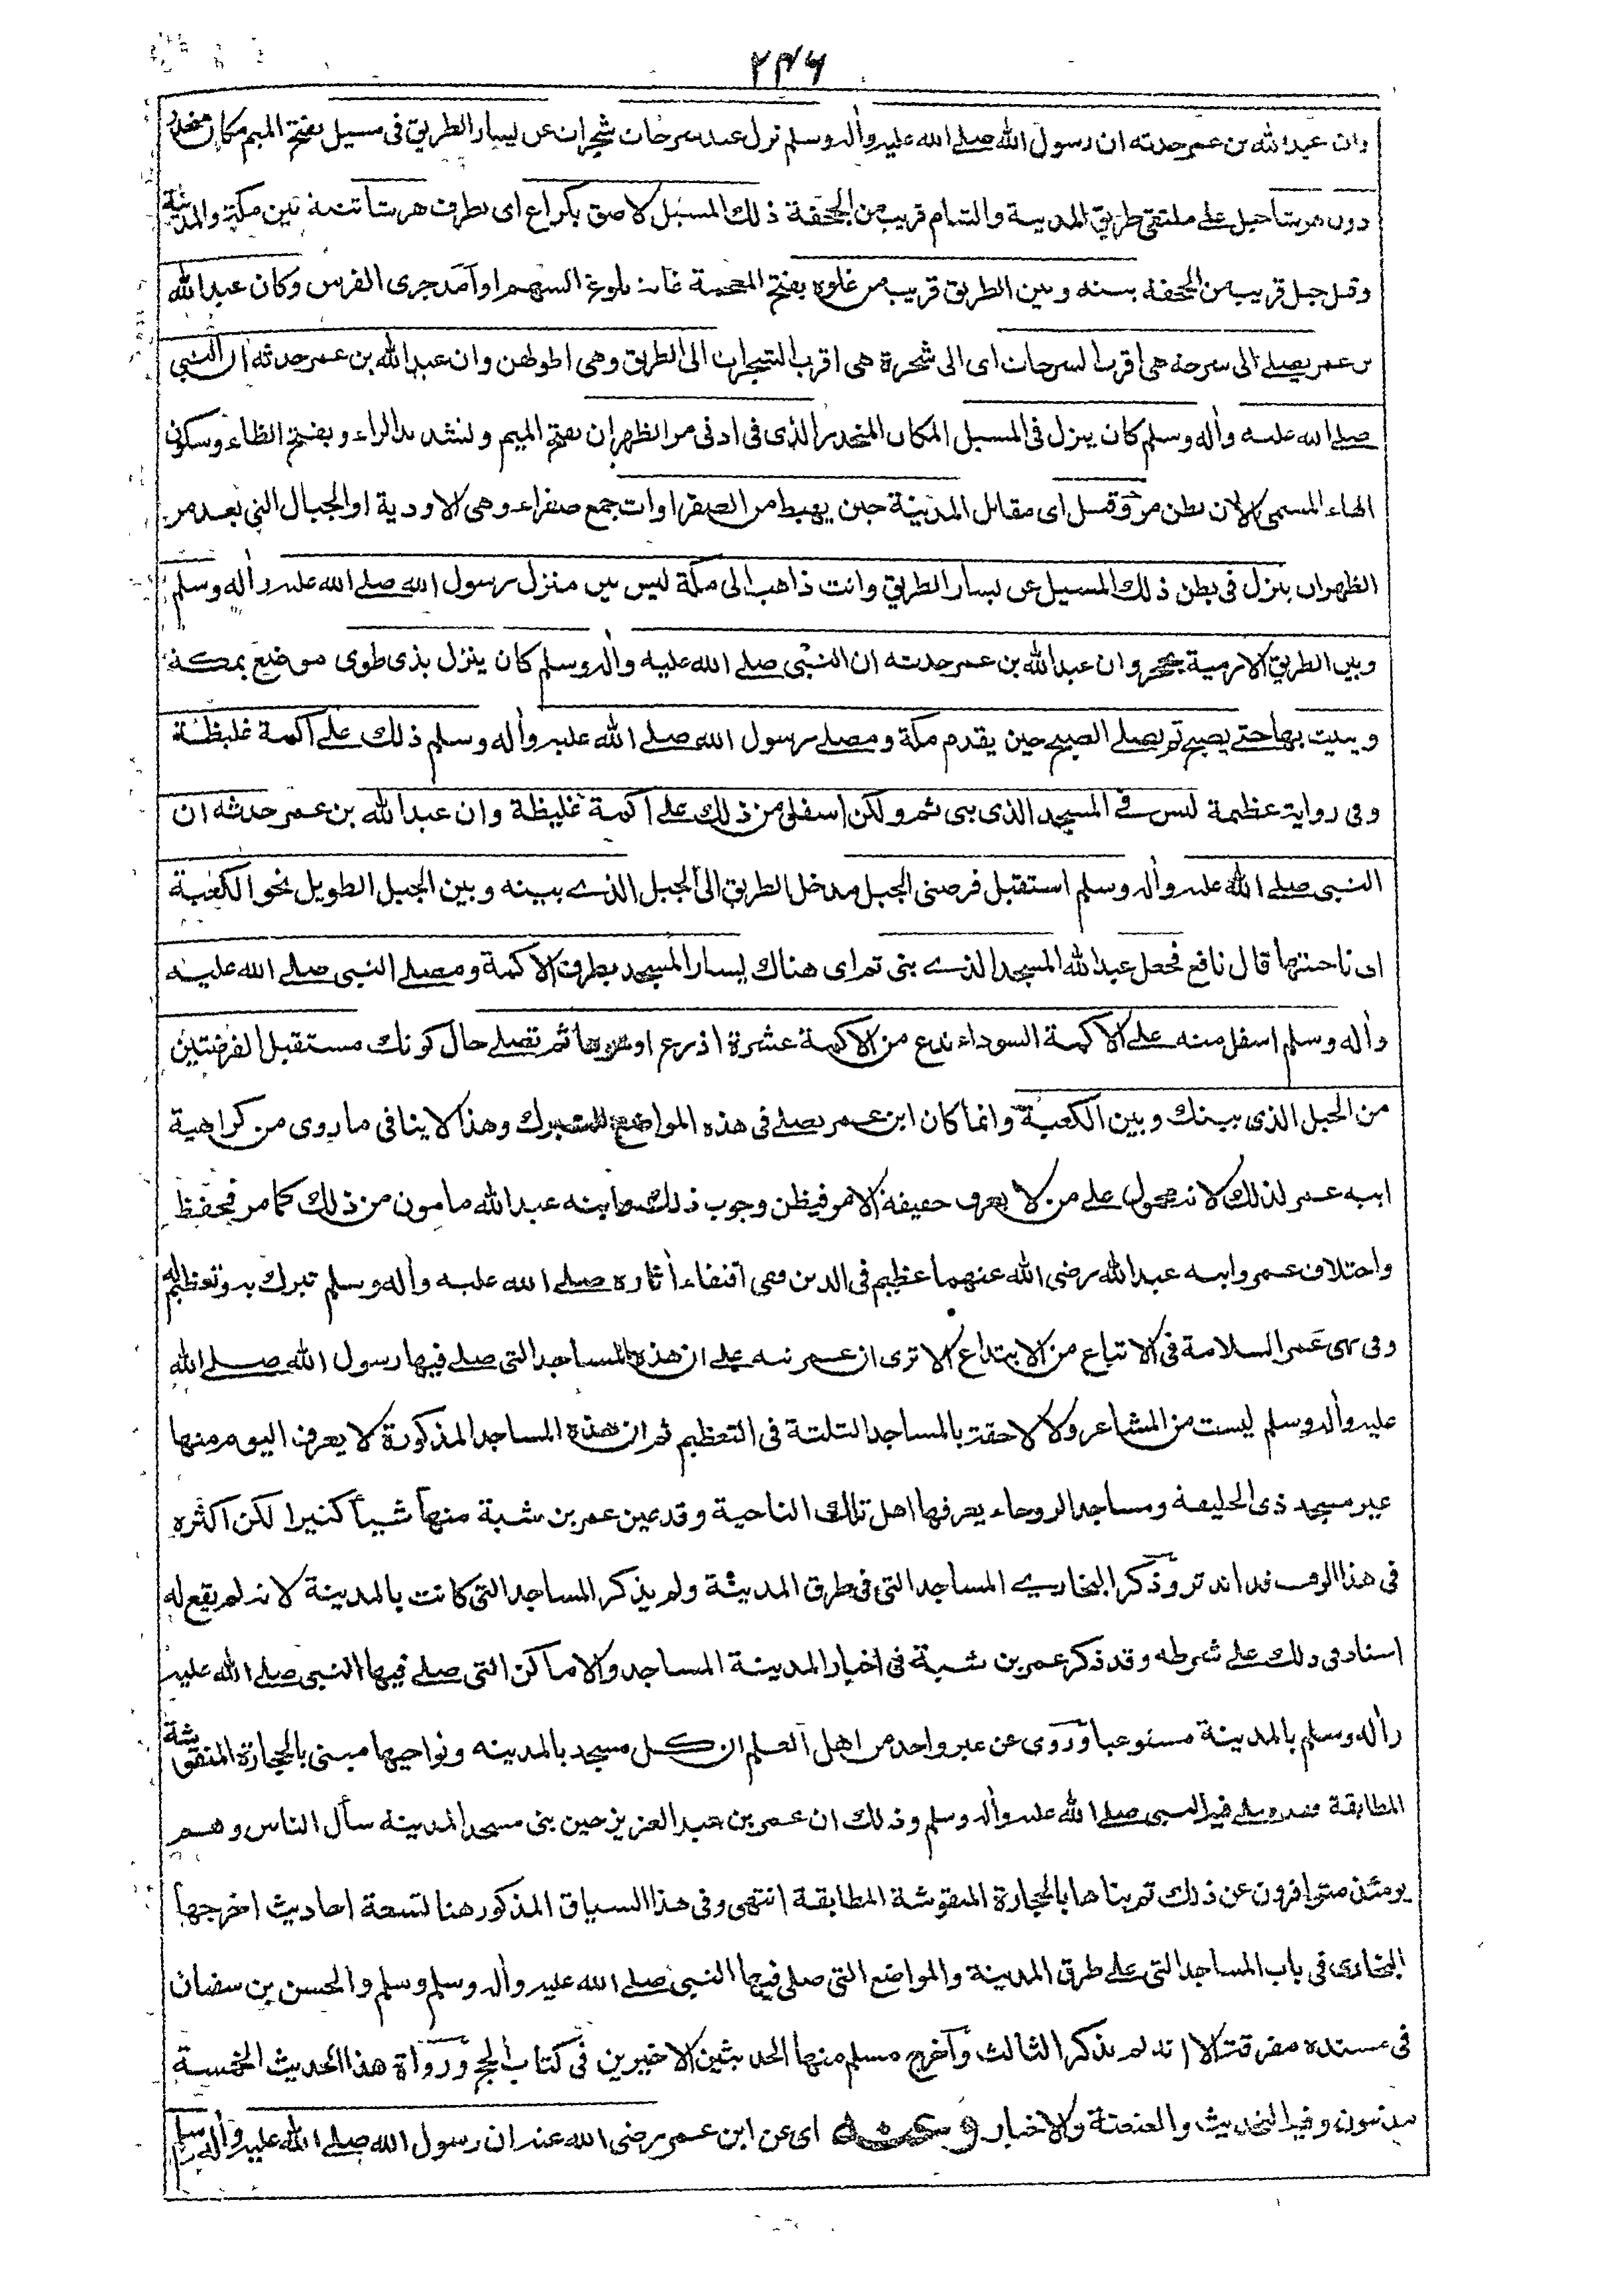 ٢٣٦
وان عبد الله بن عمر حدثه ان رسول الله صلے الله عليه وأله وسلم نزل عند سرحات شجرات عن يسار الطريق فى مسيل بفتح الميم مكان منحدر
دون هرشا جبل على ملتقى طريق المدينة والشام قريب من الجحفة ذلك المسيل لاصق بكراع اى بطرف هرشا ثنية بين مكة والمدينة
وقيل جبل قريب من الجحفة بينه وبين الطريق قريب من غلوة بفتح المعجمة غاية بلوغ السهم او أمد جرى الفرس وكان عبد الله
بن عمر يصلے الى سرحة هى اقرب السرحات اى الى شجرة هى اقرب الشجرات الى الطريق وهى اطولهن وان عبد الله بن عمر حدثه ان النبي
صلے الله عليه وأله وسلم كان ينزل فى المسيل المكان المنحدر الذى فى ادنى مر الظهران بفتح الميم وتشديد الراء وبفتح الظاء وسكون
الهاء المسمى الان بطن مرو قبل اى مقابل المدينة حين يهبط من الصفراوات جمع صفراء وهى الاودية او الجبال التي بعد مر
الظهران ينزل فى بطن ذلك المسيل عن يسار الطريق وانت ذاهب الى مكة ليس بين منزل رسول الله صلے الله عليه وأله وسلم
وبين الطريق الا رمية بحجر وان عبد الله بن عمر حدثه ان النبي صلے الله عليه وأله وسلم كان ينزل بذى طوى موضع بمكة
ويبيت بها حتے يصبح ثم يصلے الصبح حين يقدم مكة ومصلے رسول الله صلے الله عليه وأله وسلم ذلك علے اكمة غليظة
وفى رواية عظيمة ليس فے المسجد الذى بنى ثم ولكن اسفل من ذلك علے اكمة غليظة وان عبد الله بن عمر حدثه ان
النبى صلے الله عليه وأله وسلم استقبل فرضتى الجبل مدخل الطريق الى الجبل الذے بينه وبين الجبل الطويل نحو الكعبة
اى ناحيتها قال نافع فجعل عبد الله المسجد الذے بنى ثم اى هناك يسار المسجد بطرف الاكمة ومصلے النبى صلے الله عليه
وأله وسلم اسفل منه علے الاكمة السوداء تدع من الاكمة عشرة اذرع او نحوها ثم تصلے حال كونك مستقبل الفرضتين
من الجبل الذى بينك وبين الكعبة وانما كان ابن عمر يصلے فى هذه المواضع للتبرك وهذا لا ينافى ما روى من كراهية
ابيه عمر لذلك لانه محمول على من لا يعرف حقيقة الامر فيظن وجوب ذلك وابنه عبد الله مامون من ذلك كما مر فيحفظ
واختلاف عمر وابنه عبد الله رضى الله عنهما عظيم فى الدين وفى اقتفاء أثاره صلے الله عليه وأله وسلم تبرك به وتعظيم له
وفى نهى عمر السلامة فى الاتباع من الابتداع الا ترى ان عمر نبه علے ان هذه المساجد التى صلے فيها رسول الله صلے الله
عليه وأله وسلم ليست من المشاعر ولا لاحقة بالمساجد الثلثة فى التعظيم ثم ان هذه المساجد المذكورة لا يعرف اليوم منها
غير مسجد ذى الحليفة ومساجد الروحاء يعرفها اهل تلك الناحية وقد عين عمر بن شبة منها شيأ كثيرا لكن اكثره
فى هذا الوقت قد اندثر وذكر البخارے المساجد التى فى طرق المدينة ولم يذكر المساجد التى كانت بالمدينة لانه لم يقع له
اسناد فى ذلك علے شرطه وقد ذكر عمر بن شبة فى اخبار المدينة المساجد والاماكن التى صلے فيها النبى صلے الله عليه
وأله وسلم بالمدينة مستوعبا وروى عن غير واحد من اهل العلم ان كل مسجد بالمدينة ونواحيها مبنى بالحجارة المنقوشة
المطابقة فقد صلے فيه النبى صلے الله عليه وأله وسلم وذلك ان عمر بن عبد العزيز حين بنى مسجد المدينة سأل الناس وهم
يومئذ متوافرون عن ذلك ثم بناها بالحجارة المنقوشة المطابقة انتهى وفى هذا السياق المذكور هنا تسعة احاديث اخرجها
البخارى فى باب المساجد التى على طرق المدينة والمواضع التى صلى فيها النبى صلے الله عليه وأله وسلم وسلم والحسن بن سفيان
فى مسنده مفرقة الا انه لم يذكر الثالث وأخرج مسلم منها الحديثين الاخيرين فى كتاب الحج ورواة هذا الحديث الخمسة
مدنيون وفيه التحديث والعنعنة والاخبار وعنه اى عن ابن عمر رضى الله عنه ان رسول الله صلے الله عليه وأله وسلم